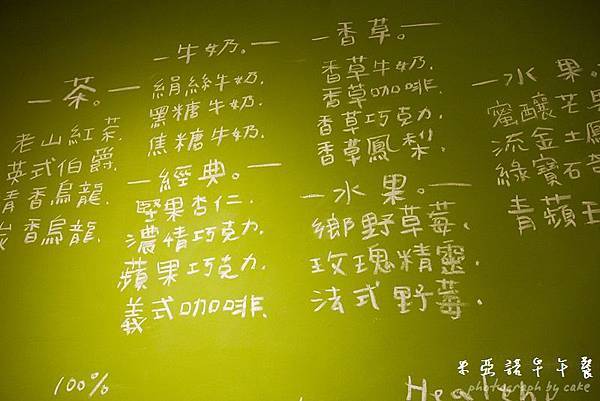 —茶。—
老山紅茶
英式伯爵.
青香烏龍.
炭香烏龍.
—牛奶。—
絹絲牛奶.
黑糖牛奶.
焦糖牛奶.
—經典。—
堅果杏仁.
濃情巧克力.
蘋果巧克力.
義式咖啡.
—香草。—
香草牛奶.
香草咖啡.
香草巧克力.
香草鳳梨.
—水果。—
鄉野草莓.
玫瑰精靈.
法式野莓.
—水果。
蜜釀芒果
流金土鳳
綠寶石奇
青蘋王
100%
Healthy
米亞諾早午餐
photograph by cake